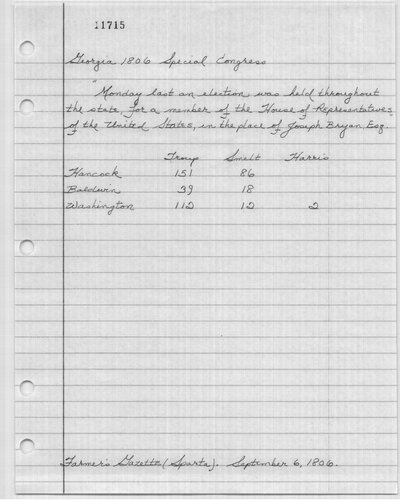 11715
Georgia 1806 Special Congress
"Monday last an election was held throughout
the state for a member of the House of Representatives
of the United States, in the place of Joseph Bryan, Esq.
Troup Smelt Harris
Hancock 151 86
Baldwin 39 18
Washington 112 12 2
Farmer's Gazette (Sparta). September 6, 1806.